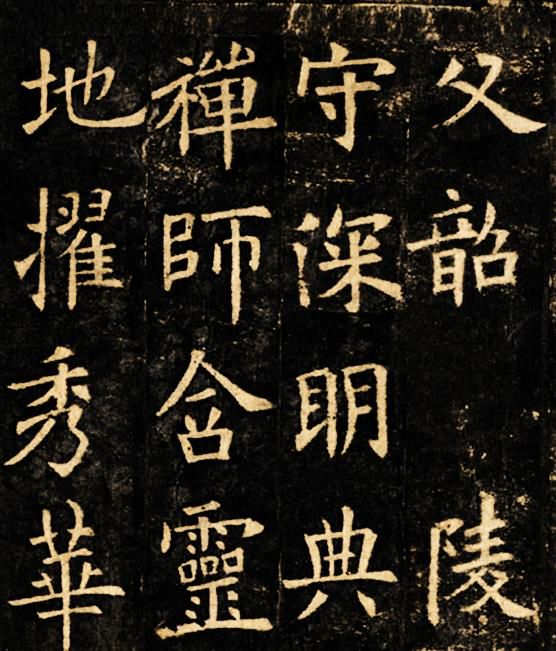 父韶陵
守深眀典
禪師含靈
地擢秀華